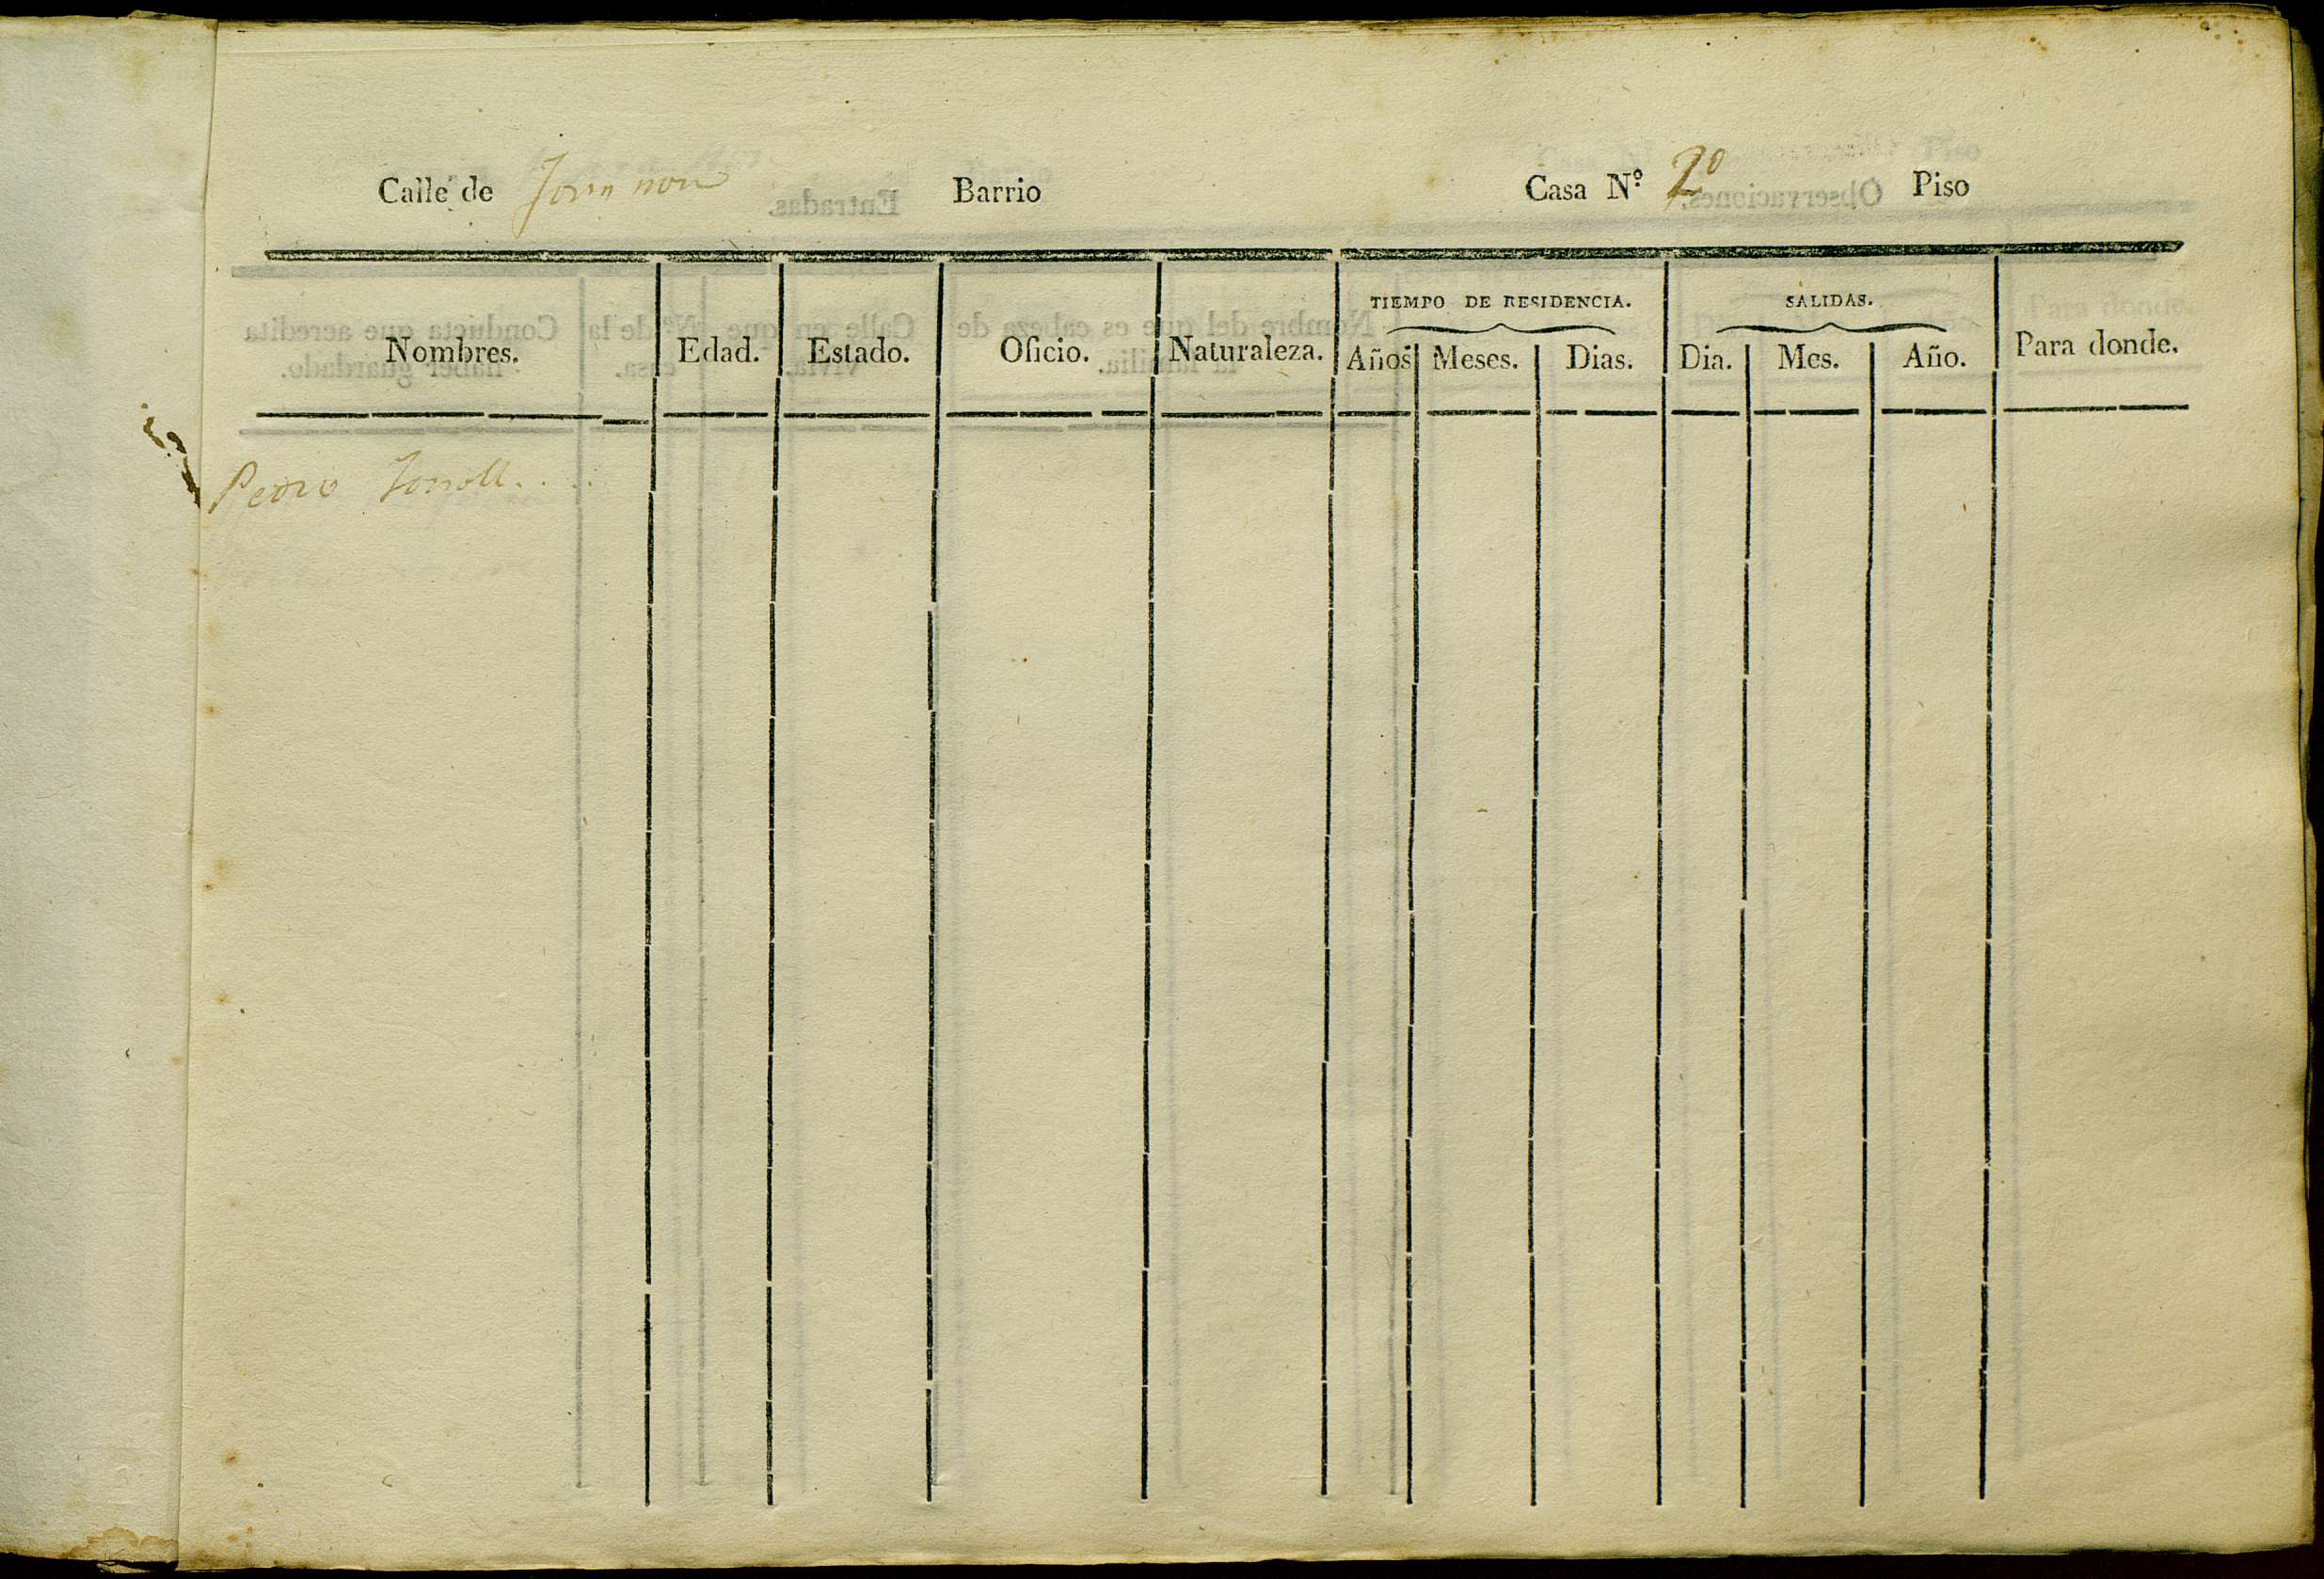 Calle de Forn nou Barrio Casa N.º 2º Piso
TIEMPO DE RESIDENCIA. SALIDAS.
Nombres. Edad. Estado. Oficio. Naturaleza. Años Meses. Dias. Dia. Mes. Año. Para donde.
Pedro